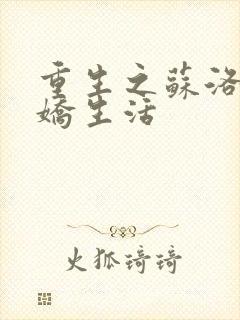 重生之蘇洛
嬌生活
火狐琦琦